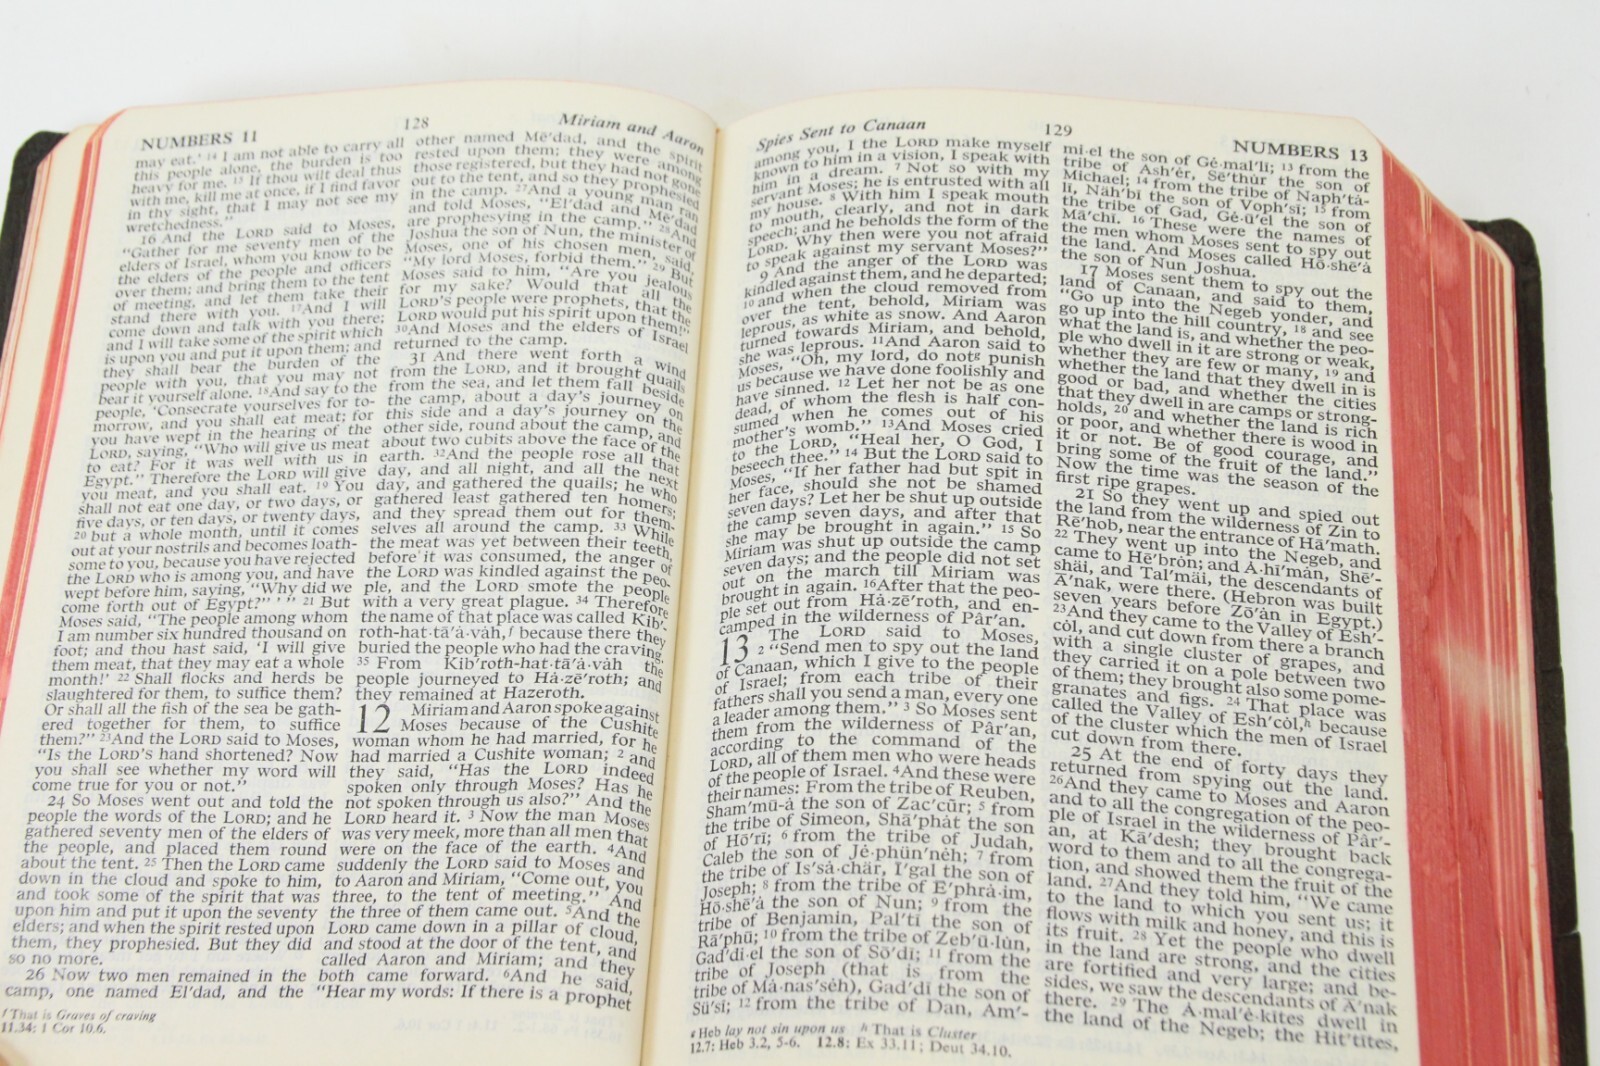 NUMBERS 11
128
Miriam and Aaron
may eat.’ 14 I am not able to carry all
this people alone, the burden is too
heavy for me. 15 If thou wilt deal thus
with me, kill me at once, if I find favor
in thy sight, that I may not see my
wretchedness.”
16 And the LORD said to Moses,
“Gather for me seventy men of the
elders of Israel, whom you know to be
the elders of the people and officers
over them; and bring them to the tent
of meeting, and let them take their
stand there with you. 17And I will
come down and talk with you there;
and I will take some of the spirit which
is upon you and put it upon them; and
they shall bear the burden of the
people with you, that you may not
bear it yourself alone. 18And say to the
people, ‘Consecrate yourselves for to-
morrow, and you shall eat meat; for
you have wept in the hearing of the
LORD, saying, “Who will give us meat
to eat? For it was well with us in
Egypt.” Therefore the LORD will give
you meat, and you shall eat. 19 You
shall not eat one day, or two days, or
five days, or ten days, or twenty days,
20 but a whole month, until it comes
out at your nostrils and becomes loath-
some to you, because you have rejected
the LORD who is among you, and have
wept before him, saying, “Why did we
come forth out of Egypt?” ’ ” 21 But
Moses said, “The people among whom
I am number six hundred thousand on
foot; and thou hast said, ‘I will give
them meat, that they may eat a whole
month!’ 22 Shall flocks and herds be
slaughtered for them, to suffice them?
Or shall all the fish of the sea be gath-
ered together for them, to suffice
them?” 23And the LORD said to Moses,
“Is the LORD’s hand shortened? Now
you shall see whether my word will
come true for you or not.”
24 So Moses went out and told the
people the words of the LORD; and he
gathered seventy men of the elders of
the people, and placed them round
about the tent. 25 Then the LORD came
down in the cloud and spoke to him,
and took some of the spirit that was
upon him and put it upon the seventy
elders; and when the spirit rested upon
them, they prophesied. But they did
so no more.
26 Now two men remained in the
camp, one named El′dad, and the
other named Mē′dad, and the spirit
rested upon them; they were among
those registered, but they had not gone
out to the tent, and so they prophesied
in the camp. 27And a young man ran
and told Moses, “El′dad and Mē′dad
are prophesying in the camp.” 28And
Joshua the son of Nun, the minister of
Moses, one of his chosen men, said,
“My lord Moses, forbid them.” 29 But
Moses said to him, “Are you jealous
for my sake? Would that all the
LORD’s people were prophets, that the
LORD would put his spirit upon them!”
30And Moses and the elders of Israel
returned to the camp.
31 And there went forth a wind
from the LORD, and it brought quails
from the sea, and let them fall beside
the camp, about a day’s journey on
this side and a day’s journey on the
other side, round about the camp, and
about two cubits above the face of the
earth. 32And the people rose all that
day, and all night, and all the next
day, and gathered the quails; he who
gathered least gathered ten homers;
and they spread them out for them-
selves all around the camp. 33 While
the meat was yet between their teeth,
before it was consumed, the anger of
the LORD was kindled against the peo-
ple, and the LORD smote the people
with a very great plague. 34 Therefore
the name of that place was called Kib′-
roth-hat·tā′a·vah,f because there they
buried the people who had the craving.
35 From Kib′roth-hat·tā′a·vah the
people journeyed to Ha·zē′roth; and
they remained at Hazeroth.
12 Miriam and Aaron spoke against
Moses because of the Cushite
woman whom he had married, for he
had married a Cushite woman; 2 and
they said, “Has the LORD indeed
spoken only through Moses? Has he
not spoken through us also?” And the
LORD heard it. 3 Now the man Moses
was very meek, more than all men that
were on the face of the earth. 4And
suddenly the LORD said to Moses and
to Aaron and Miriam, “Come out, you
three, to the tent of meeting.” And
the three of them came out. 5And the
LORD came down in a pillar of cloud,
and stood at the door of the tent, and
called Aaron and Miriam; and they
both came forward. 6And he said,
“Hear my words: If there is a prophet
f That is Graves of craving
11.34: 1 Cor 10.6.
Spies Sent to Canaan
129
NUMBERS 13
among you, I the LORD make myself
known to him in a vision, I speak with
him in a dream. 7 Not so with my
servant Moses; he is entrusted with all
my house. 8 With him I speak mouth
to mouth, clearly, and not in dark
speech; and he beholds the form of the
LORD. Why then were you not afraid
to speak against my servant Moses?”
9 And the anger of the LORD was
kindled against them, and he departed;
10 and when the cloud removed from
over the tent, behold, Miriam was
leprous, as white as snow. And Aaron
turned towards Miriam, and behold,
she was leprous. 11And Aaron said to
Moses, “Oh, my lord, do notg punish
us because we have done foolishly and
have sinned. 12 Let her not be as one
dead, of whom the flesh is half con-
sumed when he comes out of his
mother’s womb.” 13And Moses cried
to the LORD, “Heal her, O God, I
beseech thee.” 14 But the LORD said to
Moses, “If her father had but spit in
her face, should she not be shamed
seven days? Let her be shut up outside
the camp seven days, and after that
she may be brought in again.” 15 So
Miriam was shut up outside the camp
seven days; and the people did not set
out on the march till Miriam was
brought in again. 16After that the peo-
ple set out from Ha·zē′roth, and en-
camped in the wilderness of Pâr′an.
13 The LORD said to Moses,
2 “Send men to spy out the land
of Canaan, which I give to the people
of Israel; from each tribe of their
fathers shall you send a man, every one
a leader among them.” 3 So Moses sent
them from the wilderness of Pâr′an,
according to the command of the
LORD, all of them men who were heads
of the people of Israel. 4And these were
their names: From the tribe of Reuben,
Sham′mū-a the son of Zac′cūr; 5 from
the tribe of Simeon, Shā′phat the son
of Hō′rī; 6 from the tribe of Judah,
Caleb the son of Je·phün′neh; 7 from
the tribe of Is′sa·chär, I′gal the son of
Joseph; 8 from the tribe of E′phra·im,
Hō·shē′a the son of Nun; 9 from the
tribe of Benjamin, Pal′tī the son of
Rā′phū; 10 from the tribe of Zeb′ū·lun,
Gad′di·el the son of Sō′dī; 11 from the
tribe of Joseph (that is from the
tribe of Ma·nas′seh), Gad′dī the son of
Sū′sī; 12 from the tribe of Dan, Am′-
mi·el the son of Ge·mal′lī; 13 from the
tribe of Ash′er, Sē′thur the son of
Michael; 14 from the tribe of Naph′ta-
lī, Näh′bī the son of Voph′sī; 15 from
the tribe of Gad, Ge·ū′el the son of
Mā′chī. 16 These were the names of
the men whom Moses sent to spy out
the land. And Moses called Hō·shē′a
the son of Nun Joshua.
17 Moses sent them to spy out the
land of Canaan, and said to them,
“Go up into the Negeb yonder, and
go up into the hill country, 18 and see
what the land is, and whether the peo-
ple who dwell in it are strong or weak,
whether they are few or many, 19 and
whether the land that they dwell in is
good or bad, and whether the cities
that they dwell in are camps or strong-
holds, 20 and whether the land is rich
or poor, and whether there is wood in
it or not. Be of good courage, and
bring some of the fruit of the land.”
Now the time was the season of the
first ripe grapes.
21 So they went up and spied out
the land from the wilderness of Zin to
Rē′hob, near the entrance of Hā′math.
22 They went up into the Negeb, and
came to Hē′bron; and A·hī′man, Shē′-
shäi, and Tal′mäi, the descendants of
Ā′nak, were there. (Hebron was built
seven years before Zō′an in Egypt.)
23And they came to the Valley of Esh′-
col, and cut down from there a branch
with a single cluster of grapes, and
they carried it on a pole between two
of them; they brought also some pome-
granates and figs. 24 That place was
called the Valley of Esh′col,h because
of the cluster which the men of Israel
cut down from there.
25 At the end of forty days they
returned from spying out the land.
26And they came to Moses and Aaron
and to all the congregation of the peo-
ple of Israel in the wilderness of Pâr′-
an, at Kā′desh; they brought back
word to them and to all the congrega-
tion, and showed them the fruit of the
land. 27And they told him, “We came
to the land to which you sent us; it
flows with milk and honey, and this is
its fruit. 28 Yet the people who dwell
in the land are strong, and the cities
are fortified and very large; and be-
sides, we saw the descendants of Ā′nak
there. 29 The A·mal′e·kites dwell in
the land of the Negeb; the Hit′tītes,
g Heb lay not sin upon us h That is Cluster
12.7: Heb 3.2, 5-6. 12.8: Ex 33.11; Deut 34.10.